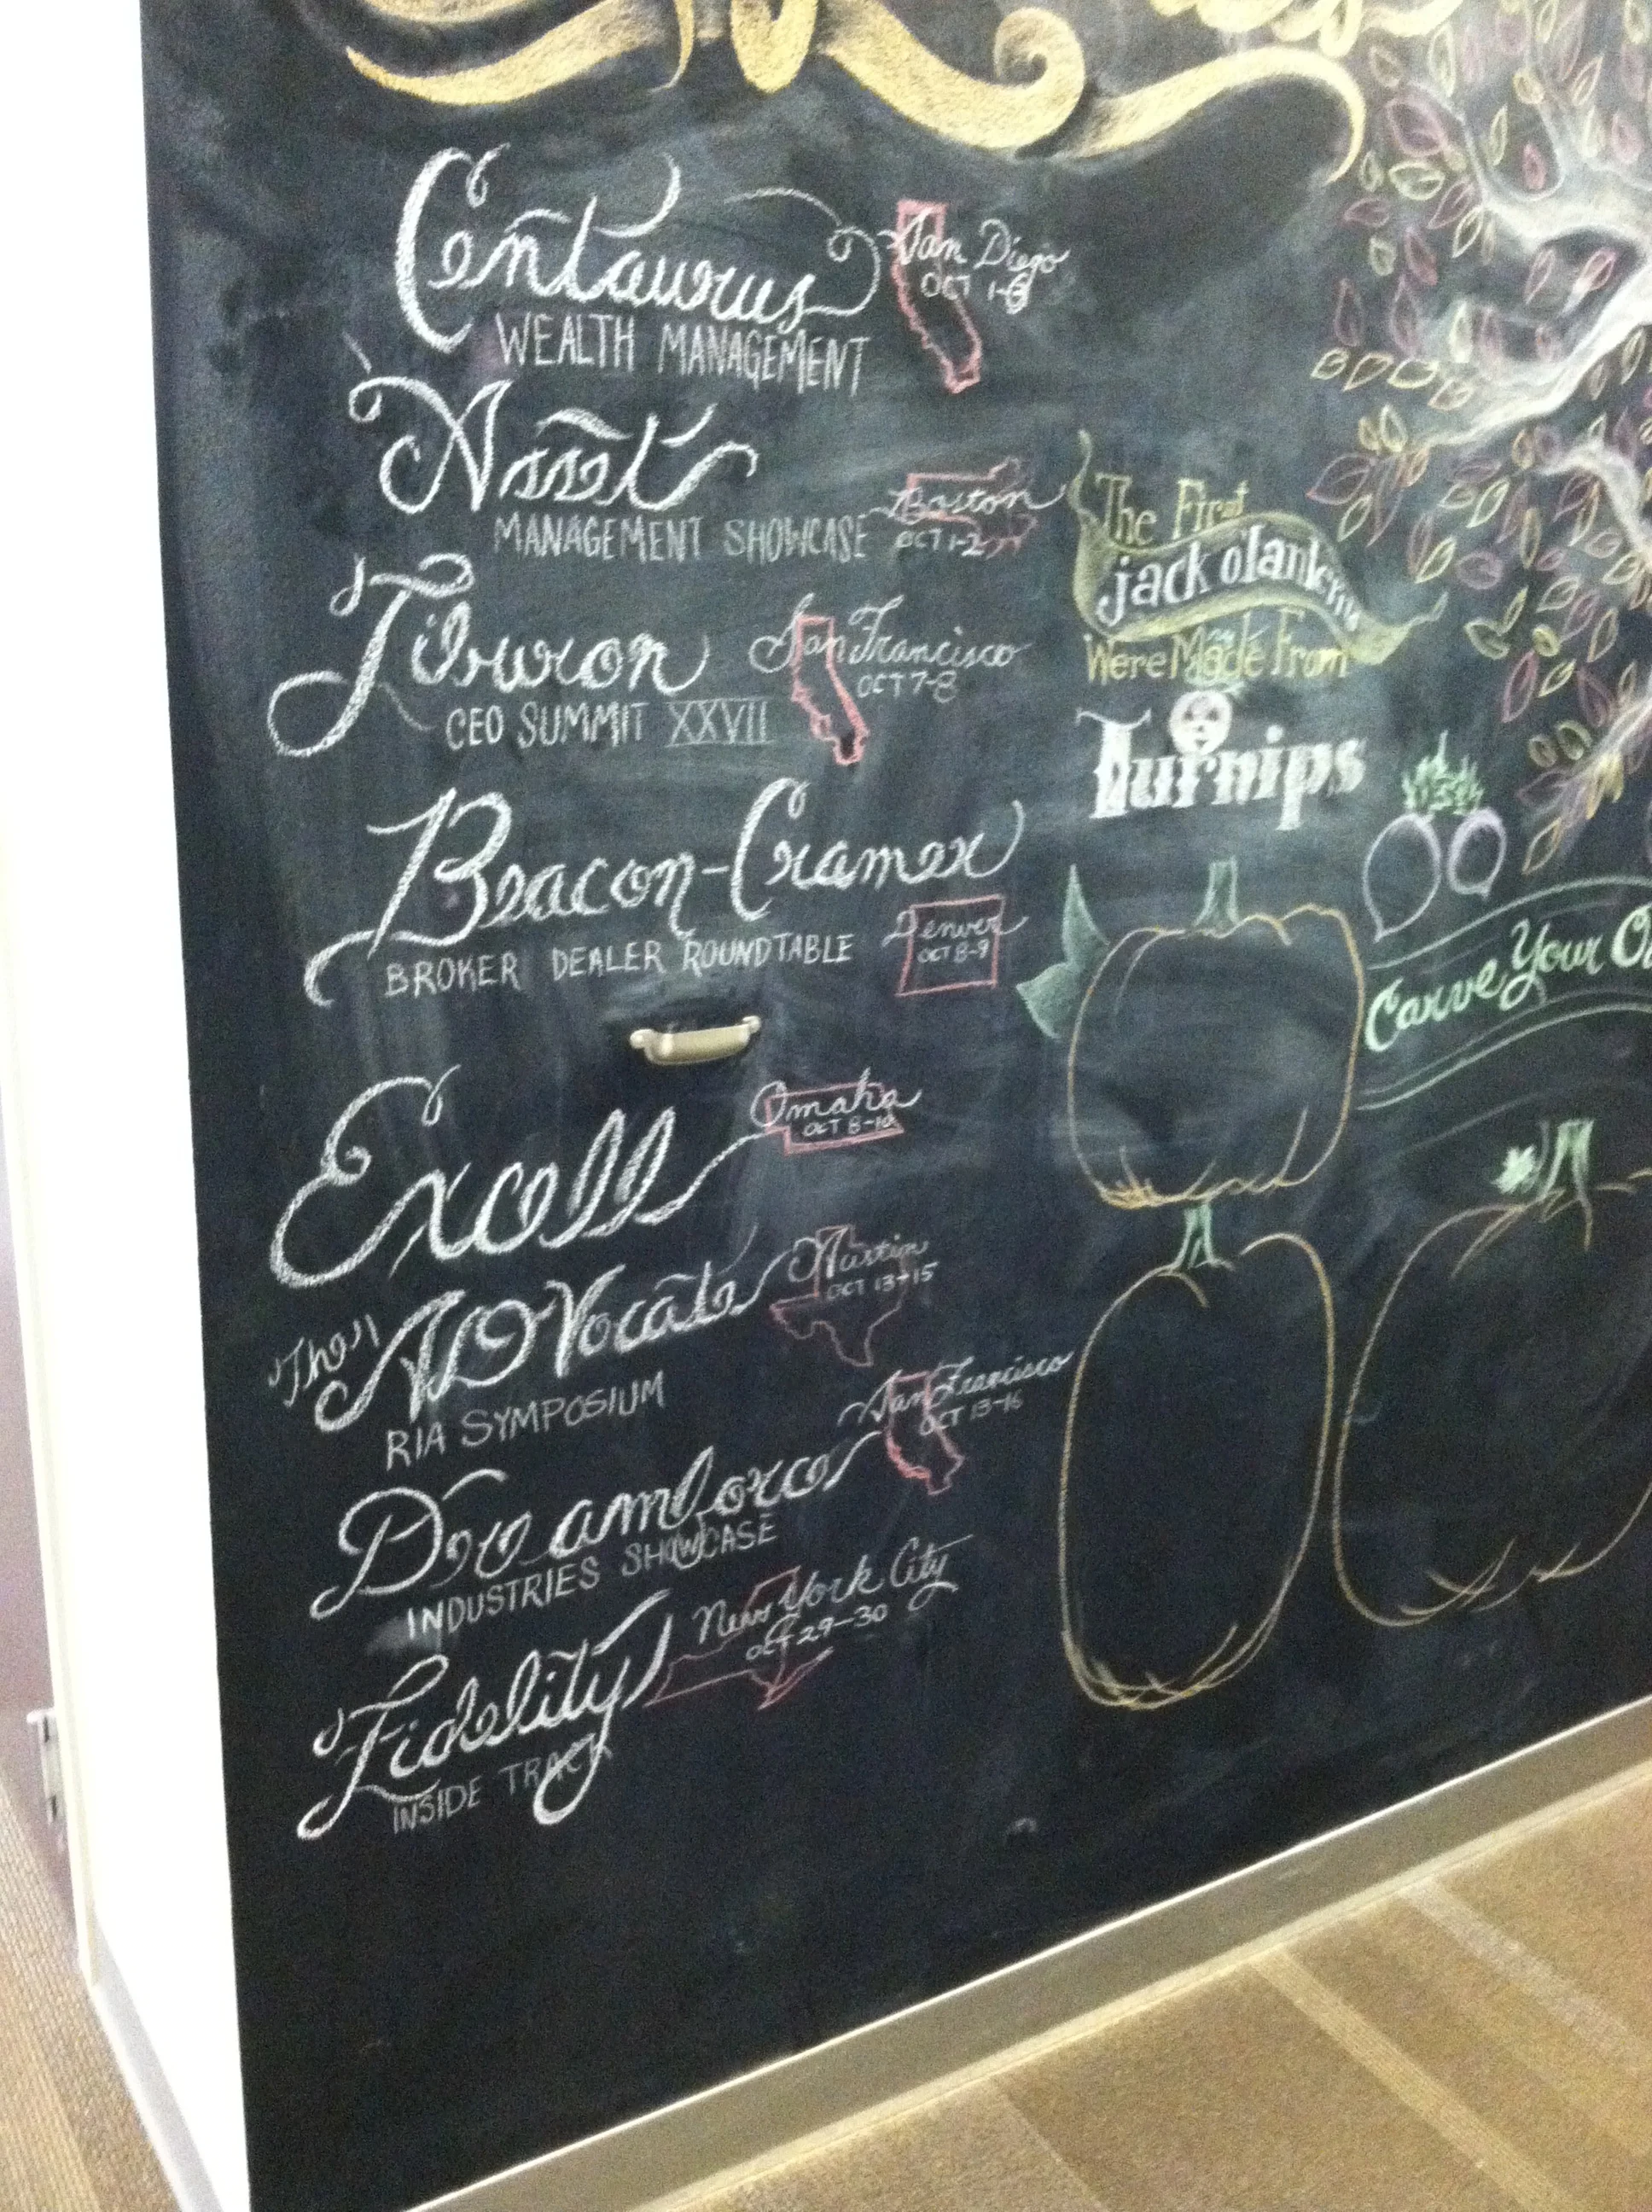 Centaurus
San Diego
OCT 1-3
WEALTH MANAGEMENT
Asset
MANAGEMENT SHOWCASE
Boston
OCT 1-2
Tiburon
San Francisco
OCT 7-8
CEO SUMMIT XXVII
Beacon-Cramer
BROKER DEALER ROUNDTABLE
Denver
OCT 8-9
Excell
Omaha
OCT 8-10
The ADVocate
Austin
OCT 13-15
RIA SYMPOSIUM
Dreamforce
San Francisco
OCT 13-16
INDUSTRIES SHOWCASE
Fidelity
New York City
OCT 29-30
INSIDE TRACK
The First
jack o'lanterns
Were Made From
Turnips
Carve Your